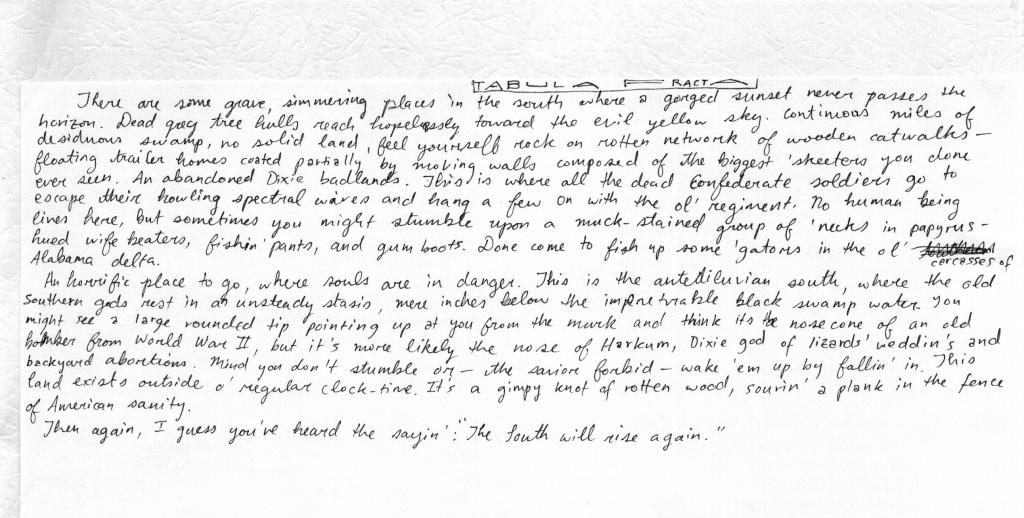 TABULA FRACTA
There are some grave, simmering places in the south where a gorged sunset never passes the
horizon. Dead grey tree hulls reach hopelessly toward the evil yellow sky. Continuous miles of
desiduous swamp, no solid land, feel yourself rock on rotten network of wooden catwalks –
floating trailer homes coated partially by moving walls composed of the biggest 'skeeters you done
ever seen. An abandoned Dixie badlands. This is where all the dead Confederate soldiers go to
escape their howling spectral waves and hang a few on with the ol' regiment. No human being
lives here, but sometimes you might stumble upon a muck-stained group of 'necks in papyrus-
hued wife beaters, fishin' pants, and gum boots. Done come to fish up some 'gators in the ol'
Alabama delta.
cercasses of
An horrific place to go, where souls are in danger. This is the antediluvian south, where the old
Southern gods rest in an unsteady stasis, mere inches below the impenetrable black swamp water. You
might see a large rounded tip pointing up at you from the murk and think its the nosecone of an old
bomber from World War II, but it's more likely the nose of Harkum, Dixie god of lizards' weddin's and
backyard abortions. Mind you don't stumble or – the savior forbid – wake 'em up by fallin' in. This
land exists outside o' regular clock-time. It's a gimpy knot of rotten wood, sourin' a plank in the fence
of American sanity.
Then again, I guess you've heard the sayin': "The South will rise again."